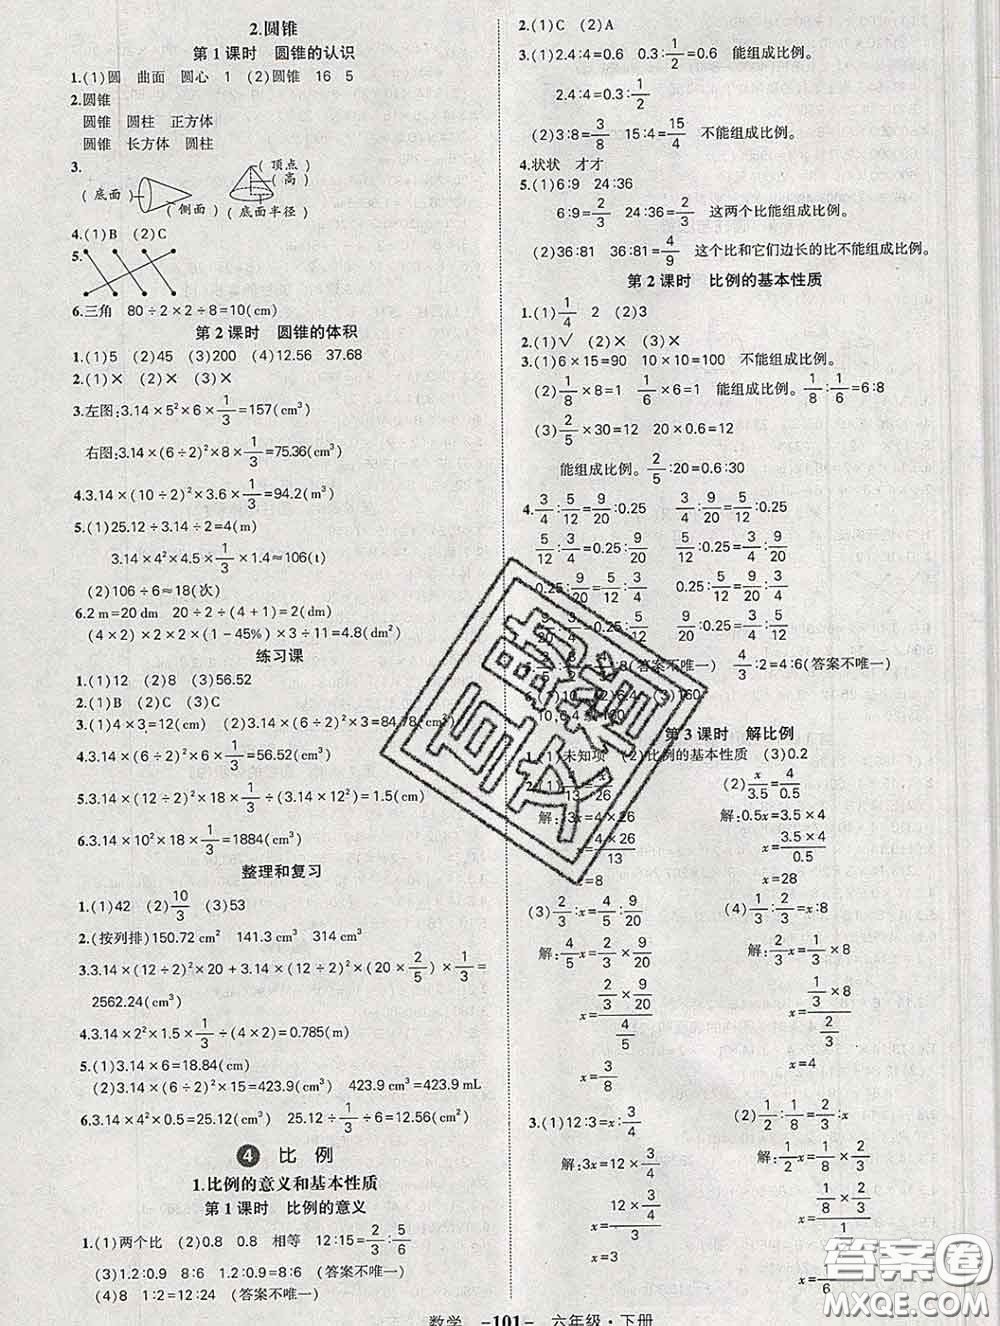 2.圆锥
第1课时 圆锥的认识
1.(1)圆 曲面 圆心 1 (2)圆锥 16 5
2.圆锥
圆锥 圆柱 正方体
圆锥 长方体 圆柱
3.
(底面)
(侧面)
(顶点)
(高)
(底面半径)
4.(1)B (2)C
5.
6.三角 80÷2×2÷8=10(cm)
第2课时 圆锥的体积
1.(1)5 (2)45 (3)200 (4)12.56 37.68
2.(1)× (2)× (3)×
3.左图:3.14×5²×6×1/3=157(cm³)
右图:3.14×(6÷2)²×8×1/3=75.36(cm³)
4.3.14×(10÷2)²×3.6×1/3=94.2(m³)
5.(1)25.12÷3.14÷2=4(m)
3.14×4²×4.5×1/3×1.4≈106(t)
(2)106÷6≈18(次)
6.2 m=20 dm 20÷2÷(4+1)=2(dm)
(4×2)×2×2×(1-45%)×3÷11=4.8(dm²)
练习课
1.(1)12 (2)8 (3)56.52
2.(1)B (2)C (3)C
3.(1)4×3=12(cm) (2)3.14×(6÷2)²×3=84.78(cm³)
4.3.14×(6÷2)²×6×1/3=56.52(cm³)
5.3.14×(12÷2)²×18×1/3÷(3.14×12²)=1.5(cm)
6.3.14×10²×18×1/3=1884(cm³)
整理和复习
1.(1)42 (2)10/3 (3)53
2.(按列排)150.72 cm² 141.3 cm³ 314 cm³
3.3.14×(12÷2)²×20+3.14×(12÷2)²×(20×2/5)×1/3=
2562.24(cm³)
4.3.14×2²×1.5×1/3÷(4×2)=0.785(m)
5.(1)3.14×6=18.84(cm)
(2)3.14×(6÷2)²×15=423.9(cm³) 423.9 cm³=423.9 mL
6.3.14×4²×0.5=25.12(cm³) 25.12÷1/3÷6=12.56(cm²)
4 比例
1.比例的意义和基本性质
第1课时 比例的意义
1.(1)两个比 (2)0.8 0.8 相等 12:15=2/3:5/6
(3)1.2:0.9 8:6 1.2:0.9=8:6 (答案不唯一)
(4)8 1:2=12:24 (答案不唯一)
2.(1)C (2)A
3.(1)2.4:4=0.6 0.3:1/2=0.6 能组成比例。
2.4:4=0.3:1/2
(2)3:8=3/8 15:4=15/4 不能组成比例。
4.状状 才才
5.(1)6:9 24:36
6:9=2/3 24:36=2/3 这两个比能组成比例。
(2)36:81 36:81=4/9 这个比和它们边长的比不能组成比例。
第2课时 比例的基本性质
1.(1)1/4 2 (2)3
2.(1)√ (2)× (3)×
3.(1)6×15=90 10×10=100 不能组成比例。
(2)1/8×8=1 1/6×6=1 能组成比例。1/8:1/6=6:8
(3)2/5×30=12 20×0.6=12
能组成比例。2/5:20=0.6:30
4.3/4:5/12=9/20:0.25 3/4:9/20=5/12:0.25
5/12:3/4=0.25:9/20 5/12:0.25=3/4:9/20
0.25:9/20=5/12:3/4 0.25:5/12=9/20:3/4
9/20:3/4=0.25:5/12 9/20:0.25=3/4:5/12
8(答案不唯一) 4/3:2=4:6(答案不唯一)
(3)160
第3课时 解比例
1.(1)未知项 (2)比例的基本性质 (3)0.2
(2)x/3.5=4/0.5
解:13x=4×26 解:0.5x=3.5×4
x=4×26/13 x=3.5×4/0.5
x=8 x=28
(3)2/3:x=4/5:9/20 (4)1/3:2/3=x:8
解:4/5x=2/3×9/20 解:2/3x=1/3×8
x=(2/3×9/20)/(4/5) x=(1/3×8)/(2/3)
x=3/8 x=4
3.(1)12:3=x:3/4 (2)1/2:1/8=2/3:x
解:3x=12×3/4 解:1/2x=1/8×2/3
x=(12×3/4)/3 x=(1/8×2/3)/(1/2)
x=3 x=1/6
数学 -101- 六年级·下册
答案圈
MXQE.COM